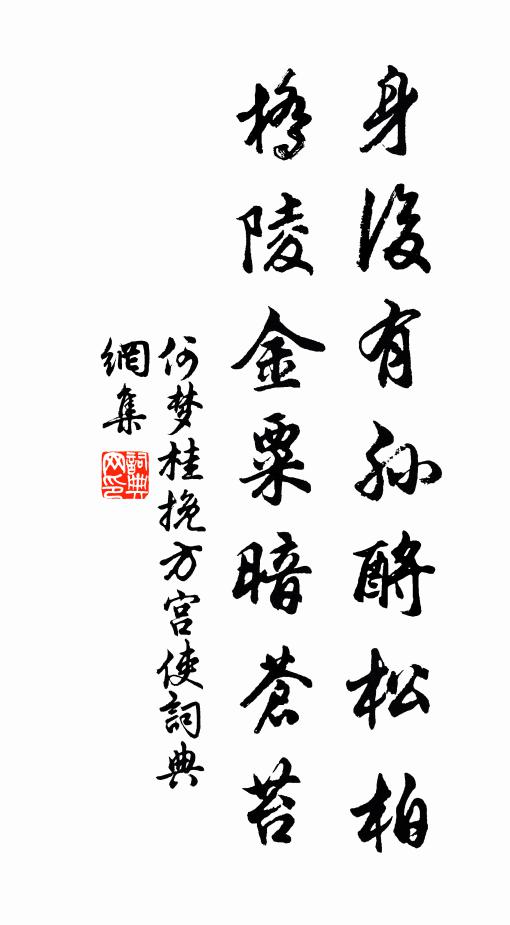 身後有孙酹松柏
橋陵金粟暗蒼苔
何梦桂挽方宫使詞典
網集
詞典網印